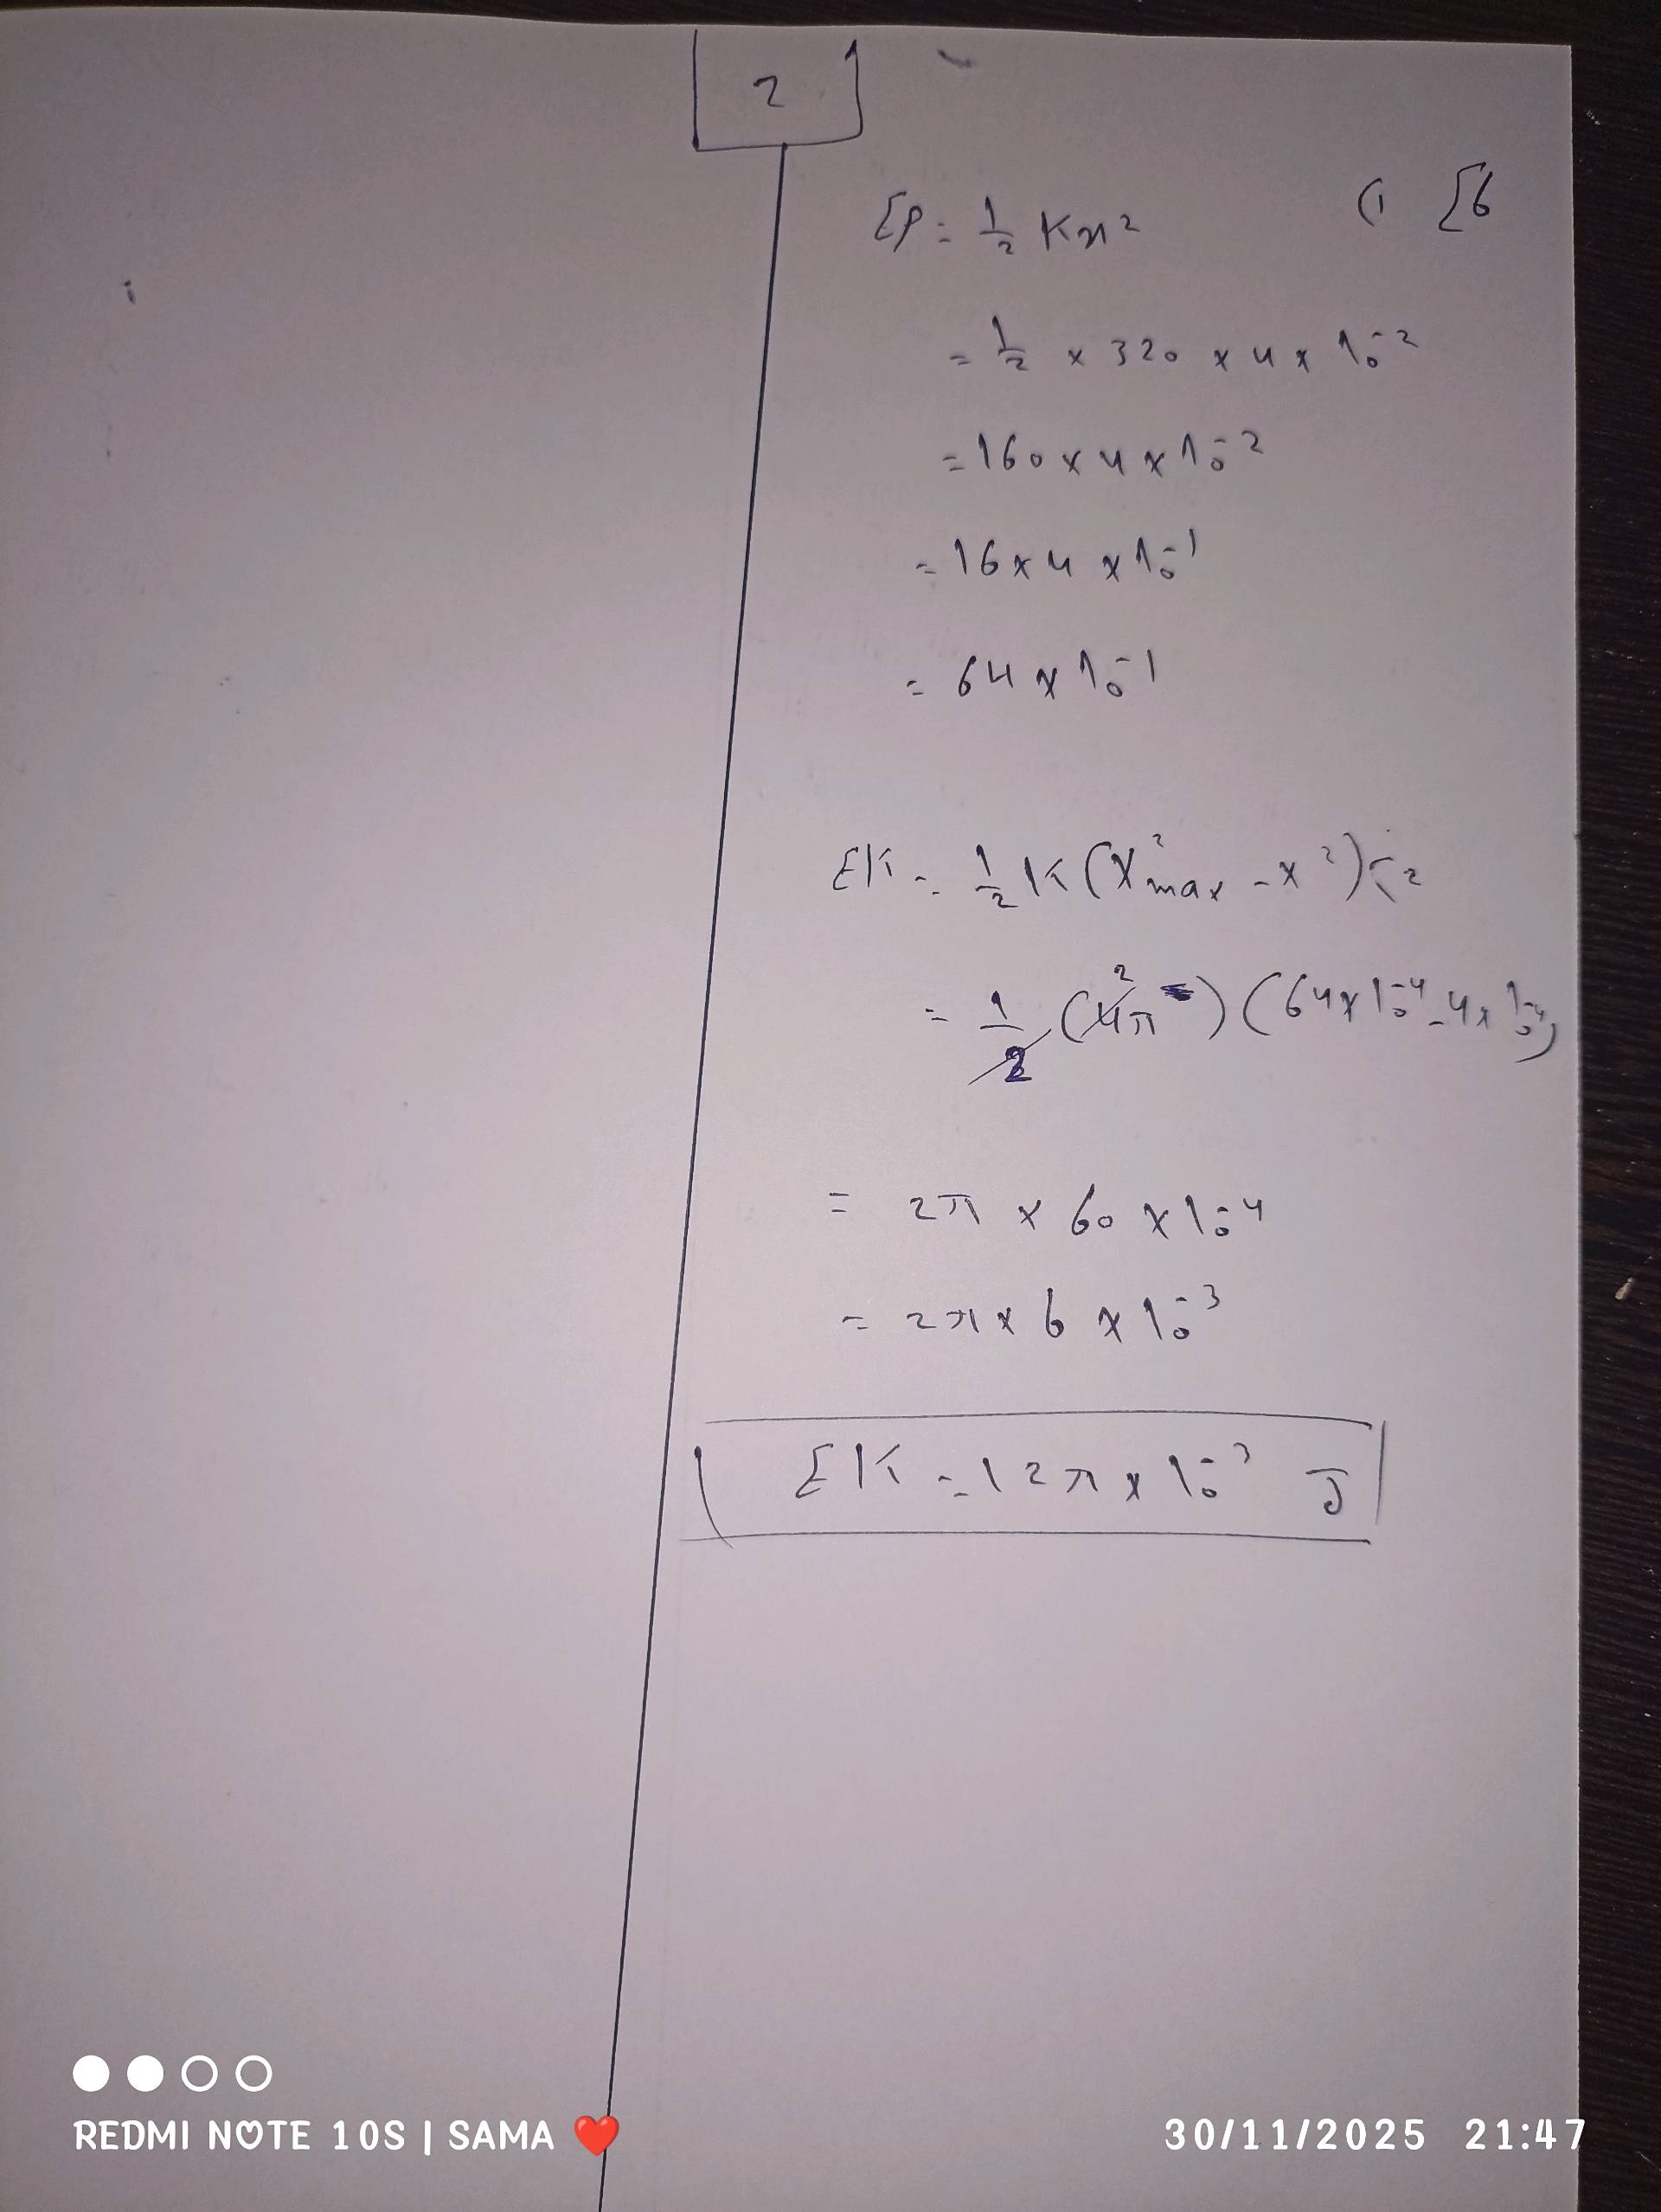 2
(1 [6
Ep = 1/2 Kx²
= 1/2 × 320 × 4 × 10⁻²
= 160 × 4 × 10⁻²
= 16 × 4 × 10⁻¹
= 64 × 10⁻¹
EK = 1/2 K (X²max - x²)
= 1/2 (4π) (64 × 10⁻⁴ - 4 × 10⁻⁴)
= 2π × 60 × 10⁻⁴
= 2π × 6 × 10⁻³
EK = 12π × 10⁻³ J
REDMI NOTE 10S | SAMA ❤️
30/11/2025 21:47